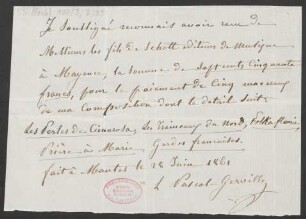 Je soussigné reconnais avoir reçu de
Messieurs les fils de Schott éditeurs de musique
à Mayence, la somme de sept cents cinquante
francs, pour le paiement de Cinq morceaux
de ma composition dont le détail suit:
Les Perles de Cimarosa, Les Traineaux du Nord, Polka
Prière à Marie, Gardes françaises.
fait à Mantes le 18 Juin 1861
L Pascal-Gerville